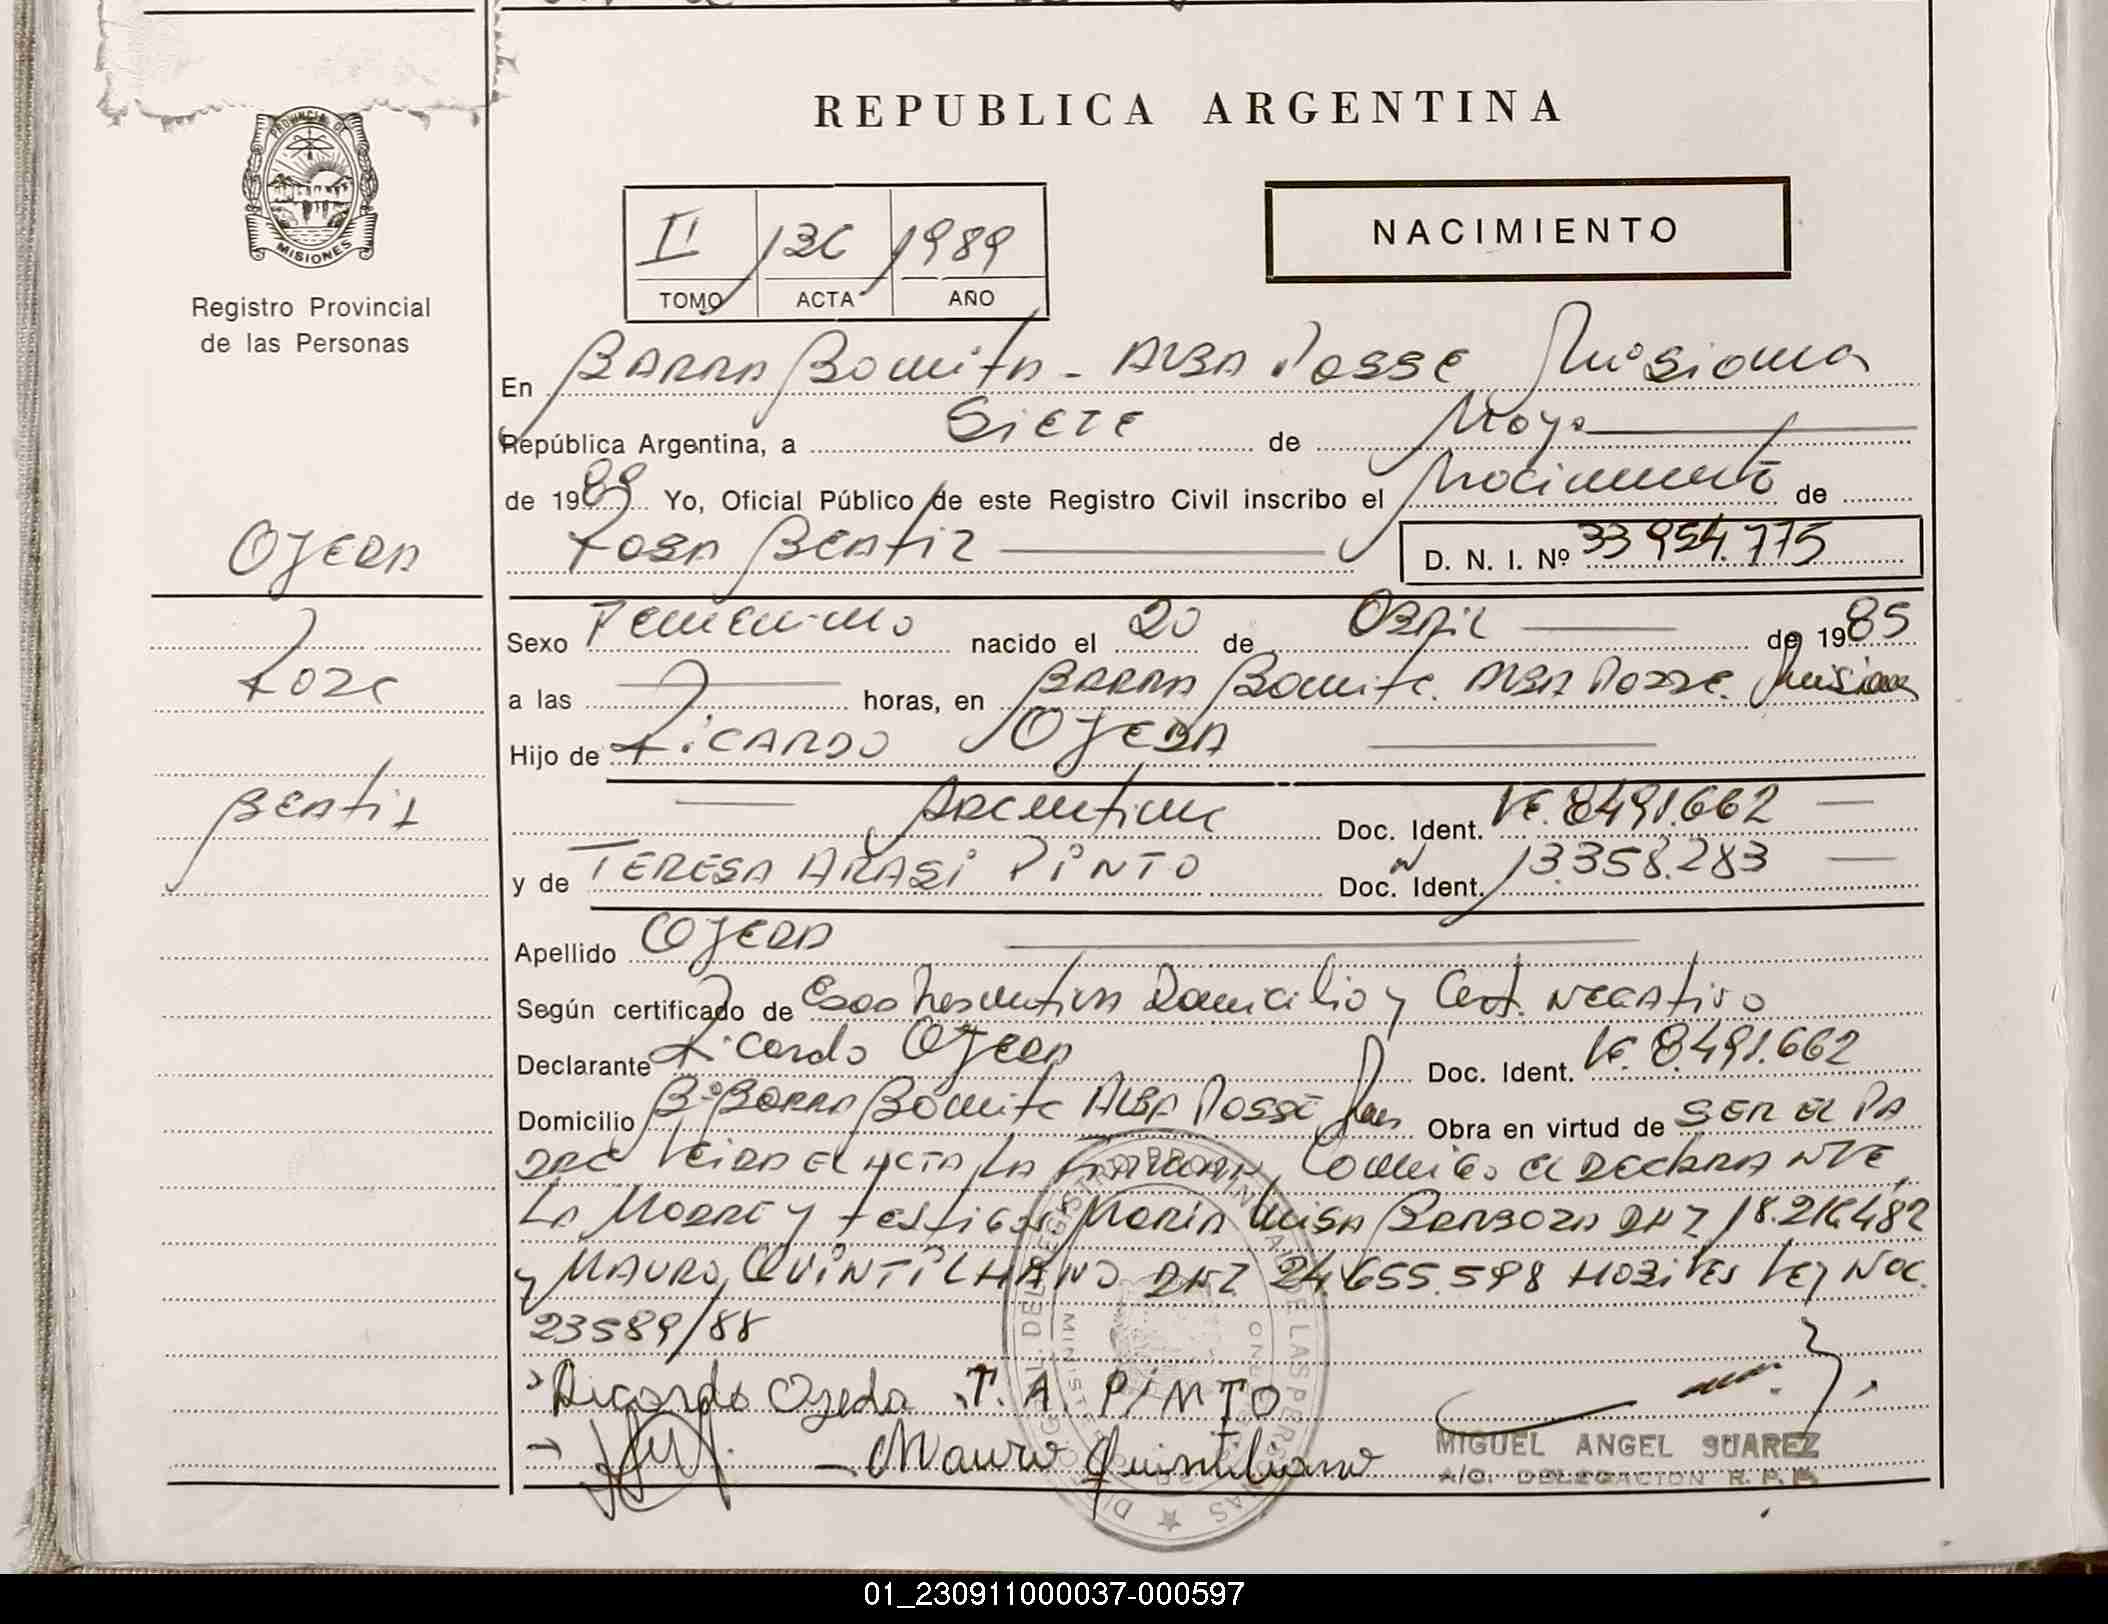 PROVINCIA DE
MISIONES
Registro Provincial
de las Personas
OJEDA
Rosa
BEATIZ
REPUBLICA ARGENTINA
NACIMIENTO
II 136 1989
TOMO ACTA AÑO
En BARRA Bonita - ALBA POSSE Misiones
República Argentina, a SiETE de Mayo
de 1989 Yo, Oficial Público de este Registro Civil inscribo el Nacimiento de
ROSA BEATIZ D. N. I. Nº 33954.775
Sexo Femenino nacido el 20 de ABRIL de 1985
a las horas, en BARRA Bonita ALBA POSSE Misiones
Hijo de RiCARDO OJEDA
ARGENTINA Doc. Ident. LE. 8491.662
y de TERESA ARASi PiNTO Doc. Ident. 13.358.283
Apellido OJEDA
Según certificado de Domicilio y Cert. NEGAtivo
Declarante Ricardo OJEDA Doc. Ident. LE. 8.491.662
Domicilio Bº BARRA Bonita ALBA POSSE Mnes Obra en virtud de SER EL PA
DRE LEIDA EL ACTA, LA FiRMAN Conmigo el DECLARANTE,
LA MADRE y testigos MARIA LUiSA BARBOZA DNI 18.216.482
y MAURO QUiNTiLHANO DNI 24.655.598 Ley Nac.
23589/88
Ricardo Ojeda T. A. PiNTO
Mauro Quintiliano
MIGUEL ANGEL SUAREZ
A/C. DELEGACION R. P. P.
01_230911000037-000597